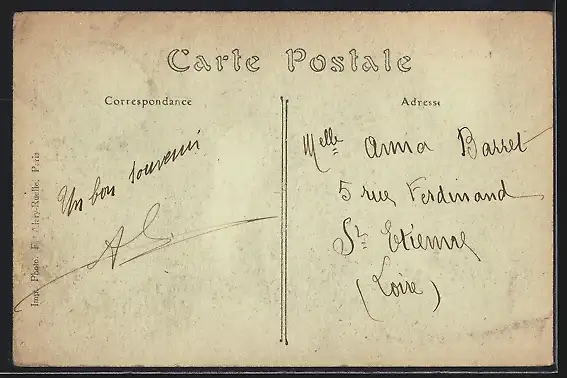 Carte Postale
Correspondance
Adresse
Un bon souvenir
Melle Anna Barret
5 rue Ferdinand
St Etienne
(Loire)
Imp. Photo. Paris